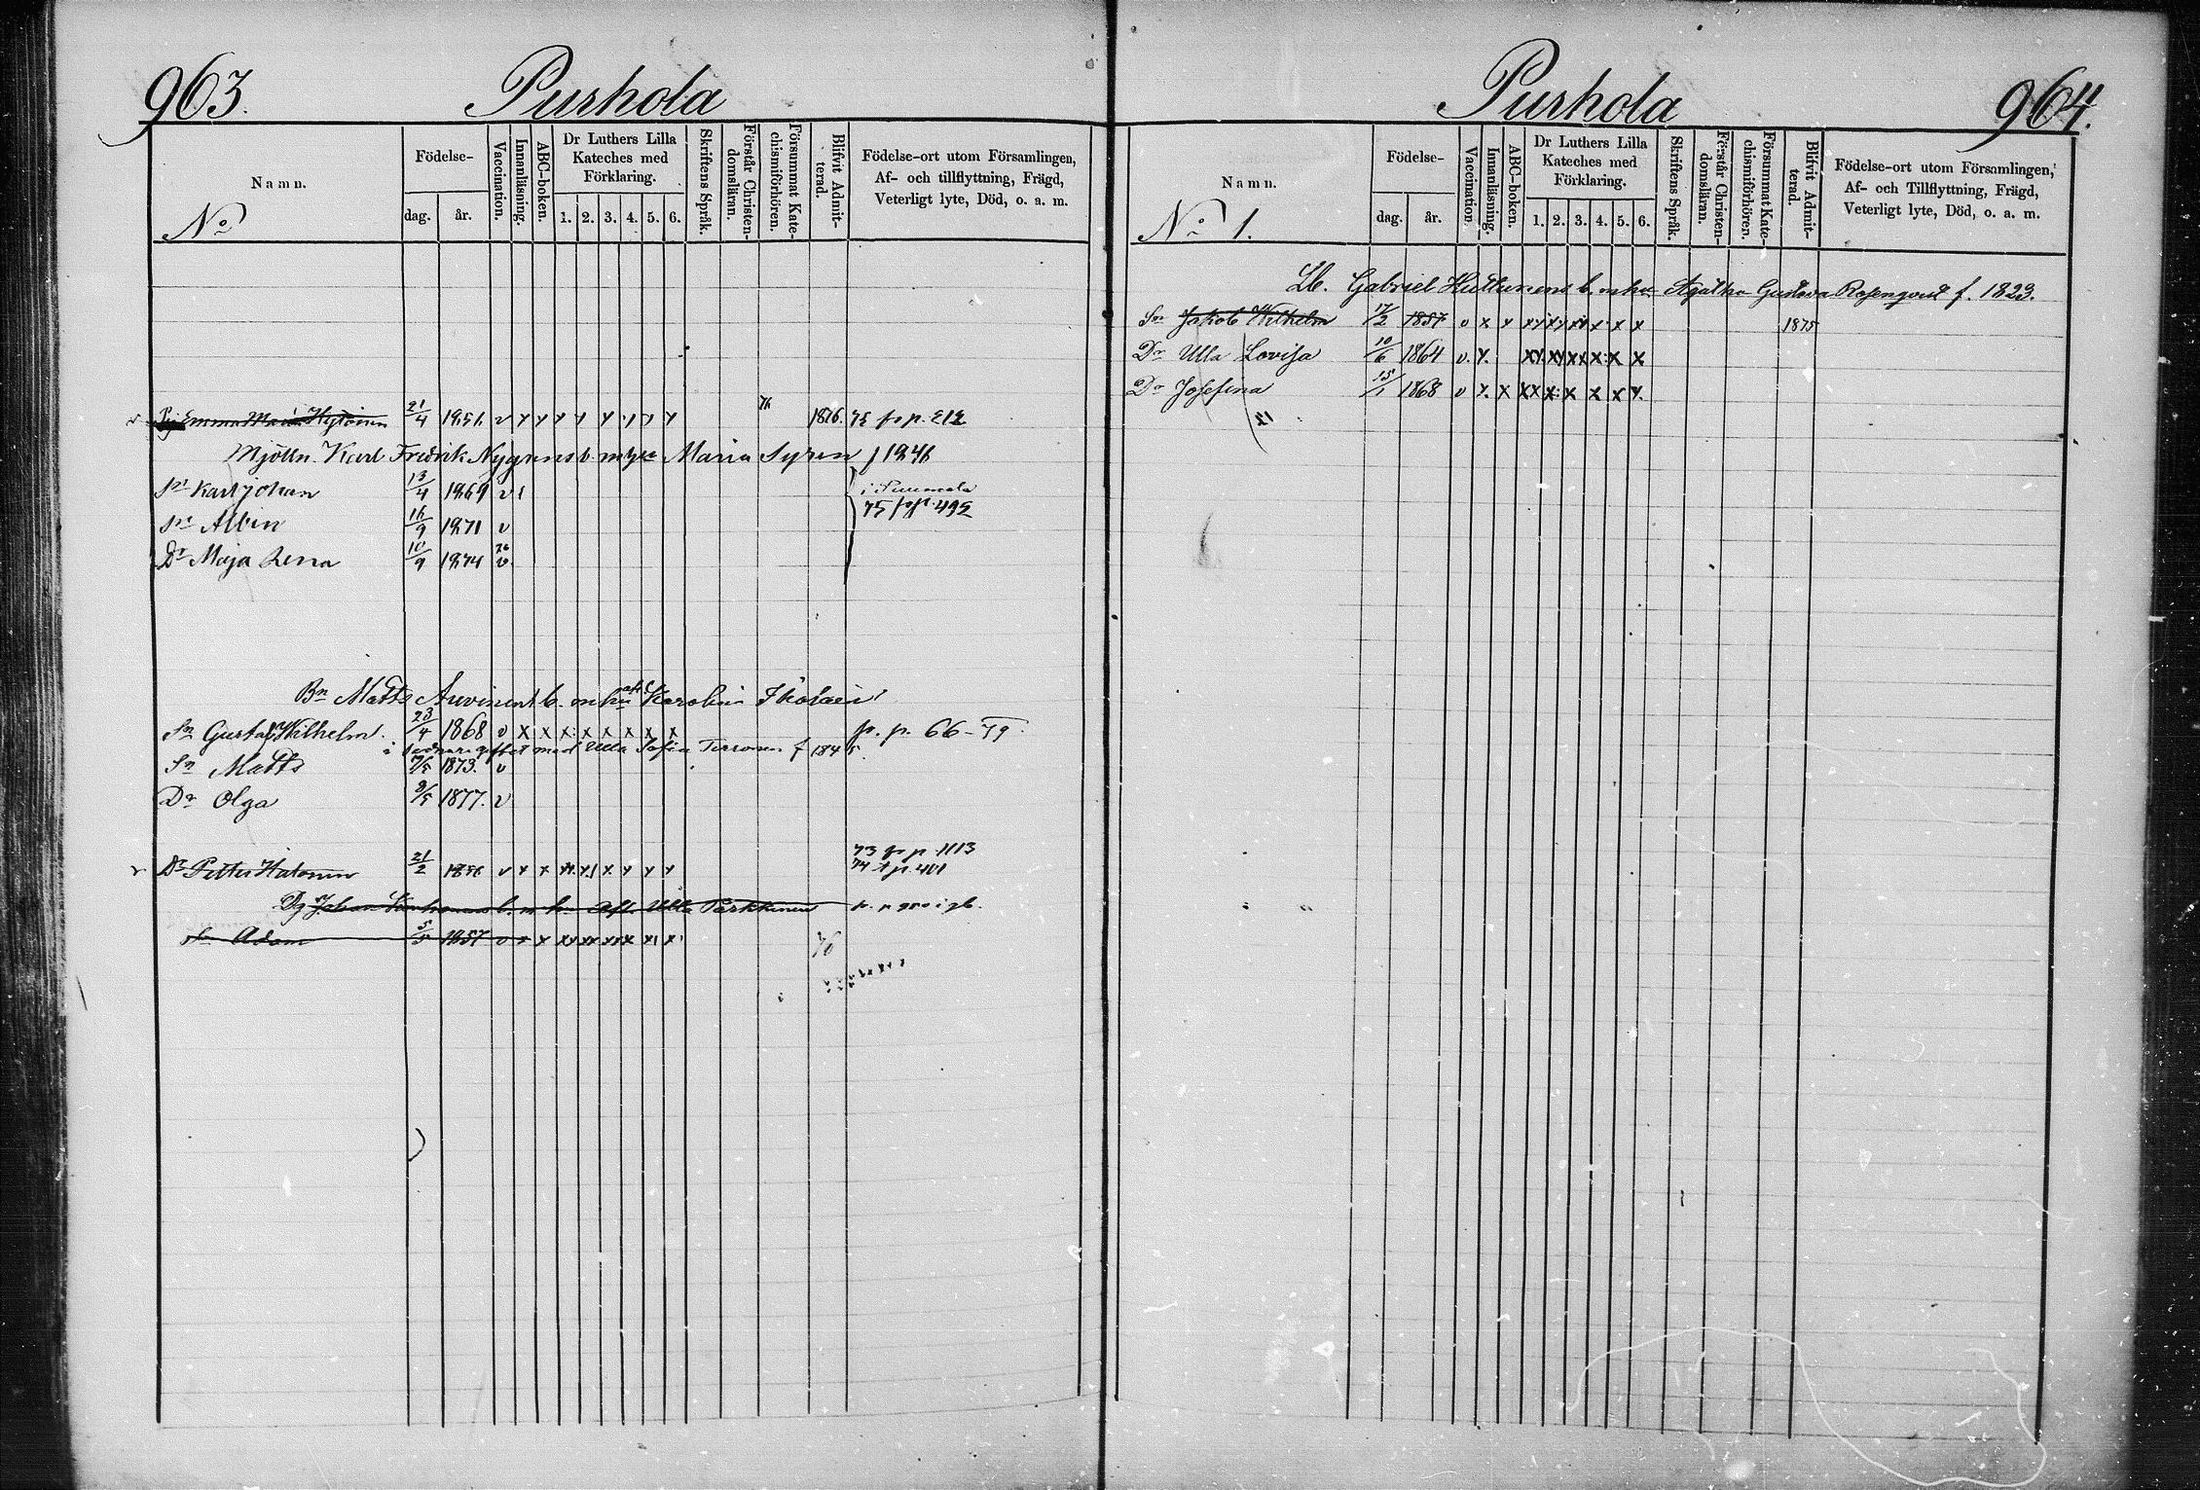 963.
Purhola
Namn.
No
Födelse-
dag.
år.
Vaccination.
Innanläsning.
ABC-boken.
Dr Luthers Lilla
Kateches med
Förklaring.
1. 2. 3. 4. 5. 6.
Skriftens Språk.
Förstår Christen-
domsläran.
Försummat Kate-
chismiförhören.
Blifvit Admit-
terad.
Födelse-ort utom Församlingen,
Af- och tillflyttning, Frägd,
Veterligt lyte, Död, o. a. m.
76
Emma Maria 21/4 1851 v x x x x x x x x 1876. 75 fr p. 212
Mjöln. Karl Fredrik Nygrens b. m h Maria Syren f 1846
Sn Karl Johan 13/4 1869 v i Puumala
75 p. 492
Sn Albin 16/9 1871 v
76
Dr Maja Lena 10/9 1874 v
Bn Matts Auvinens b. m hu Karolina
Sn Gustaf Wilhelm. 23/4 1868 v x x x x x x x x p. p. 66-79.
i giftet med Ulla Sofia Terronen f 1845.
Sn Matts 7/5 1873. v
Dr Olga 3/5 1877. v
73 fr p. 1113
74 t p. 401
Petter 21/2 1856 v x x x x x x x x
Johan b. m h. Afl. Ulla Parkkinen
Sn Adam 5/5 1857 v x x xx xx xx x x x 76
Purhola
964.
Namn.
No 1.
Födelse-
dag.
år.
Vaccination.
Innanläsning.
ABC-boken.
Dr Luthers Lilla
Kateches med
Förklaring.
1. 2. 3. 4. 5. 6.
Skriftens Språk.
Förstår Christen-
domsläran.
Försummat Kate-
chismiförhören.
Blifvit Admit-
terad.
Födelse-ort utom Församlingen,
Af- och Tillflyttning, Frägd,
Veterligt lyte, Död, o. a. m.
Lb. Gabriel Huttunens b. m hu. Agatha Gustava f. 1823.
Sn Jakob Wilhelm 17/2 1857 v x x xx xx xx x x x 1875
Dr Ulla Lovisa 10/6 1864 v. x. xx xx xx x x x
Dr Josefina 15/1 1868 v x. x xx x x x x x